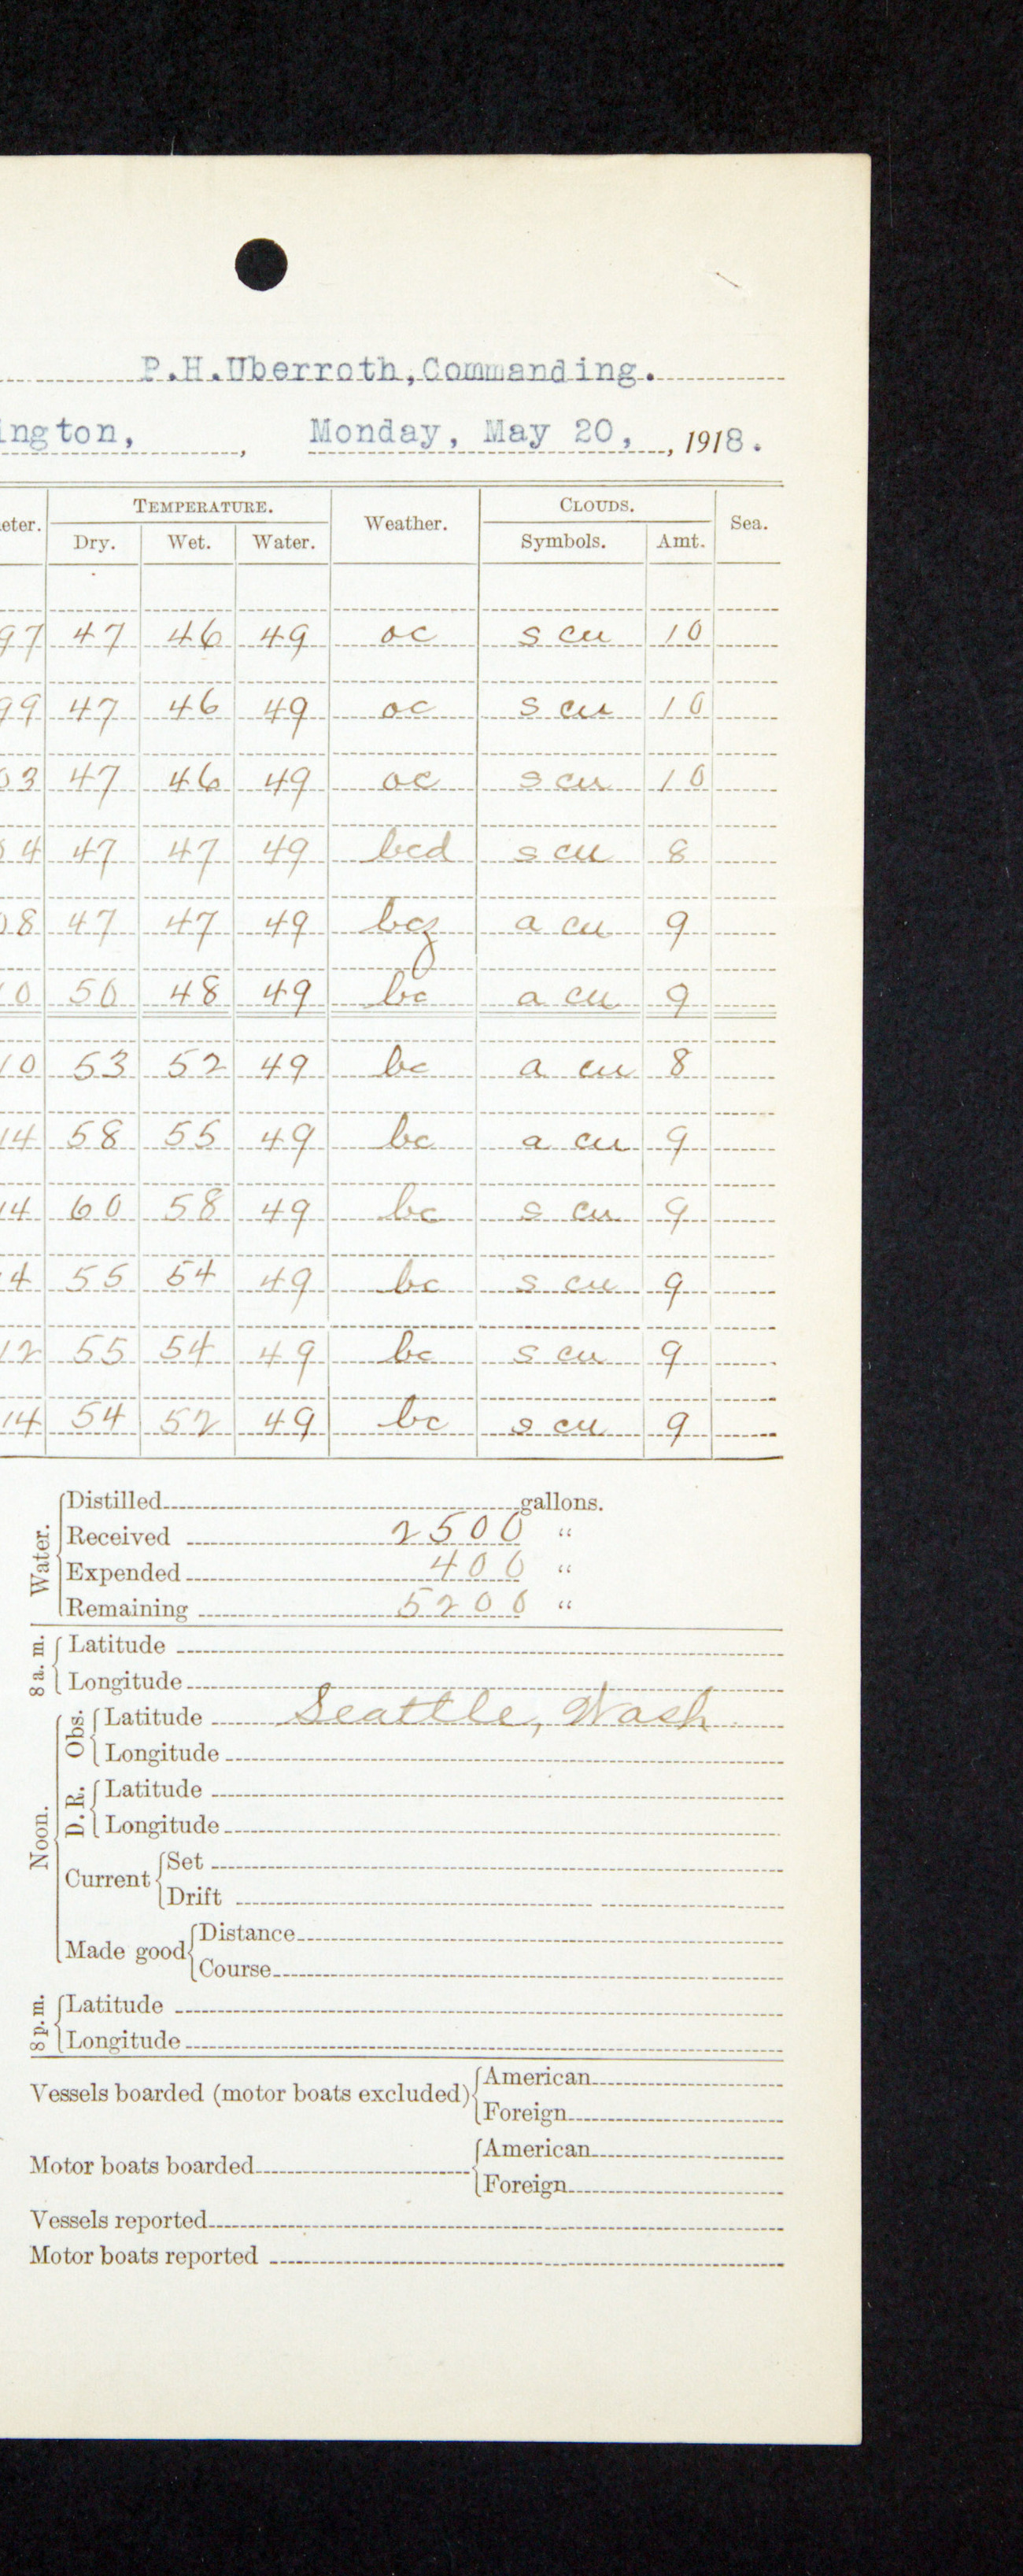 P.H.Uberroth, Commanding.
ington, , Monday, May 20, , 1918.
eter. TEMPERATURE. Weather. CLOUDS. Sea.
Dry. Wet. Water. Symbols. Amt.
97 47 46 49 oc s cu 10
99 47 46 49 oc s cu 10
03 47 46 49 oc s cu 10
04 47 47 49 bcd s cu 8
08 47 47 49 bcz a cu 9
10 50 48 49 bc a cu 9
10 53 52 49 bc a cu 8
14 58 55 49 bc a cu 9
14 60 58 49 bc s cu 9
14 55 54 49 bc s cu 9
12 55 54 49 bc s cu 9
14 54 52 49 bc s cu 9
Water.
Distilled gallons.
Received 2500 "
Expended 400 "
Remaining 5200 "
8 a. m.
Latitude
Longitude
Noon.
Obs.
Latitude Seattle, Wash.
Longitude
D. R.
Latitude
Longitude
Current
Set
Drift
Made good
Distance
Course
8 p. m.
Latitude
Longitude
Vessels boarded (motor boats excluded) American
Foreign
Motor boats boarded American
Foreign
Vessels reported
Motor boats reported